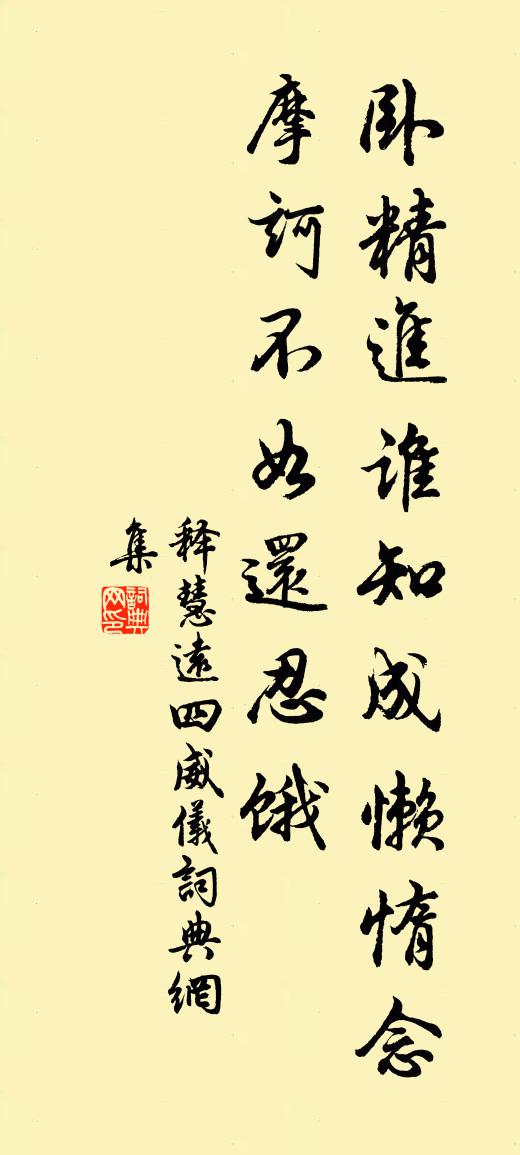 卧精進誰知成懶惰念
摩訶不如還忍餓
释慧遠四威儀詞典網
集
詞典网印